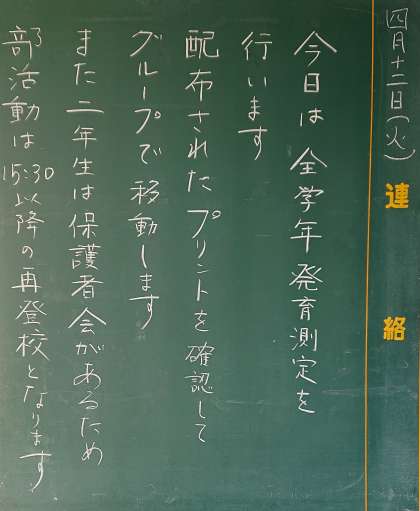 四月十二日(火)
連絡
今日は全学年発育測定を
行います
配布されたプリントを確認して
グループで移動します
また二年生は保護者会があるため
部活動は15:30以降の再登校となります